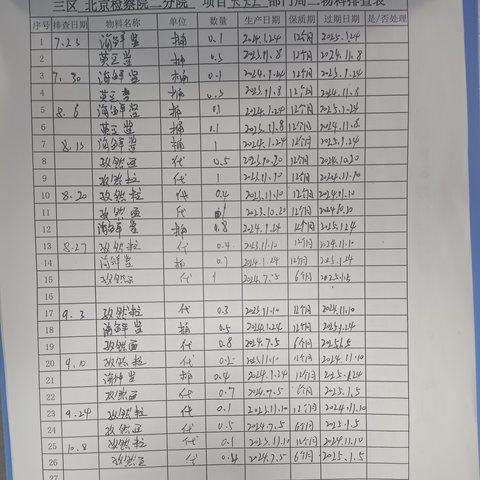 三区 北京检察院二分院 项目 部门周二物料排查表
序号 排查日期 物料名称 单位 数量 生产日期 保质期 过期日期 是/否处理
1 7.23 海鲜酱 桶 0.1 2024.1.24 12个月 2025.1.24
2 黄豆酱 桶 0.5 2023.11.8 12个月 2024.11.8
3 7.30 海鲜酱 桶 0.1 2024.1.24 12个月 2025.1.24
4 黄豆酱 桶 0.5 2023.11.8 12个月 2024.11.8
5 8.6 海鲜酱 桶 0.1 2024.1.24 12个月 2025.1.24
6 黄豆酱 桶 0.1 2023.11.8 12个月 2024.11.8
7 8.13 海鲜酱 桶 1 2024.1.24 12个月 2025.1.24
8 孜然面 代 0.5 2023.10.20 12个月 2024.10.20
9 孜然粒 代 1 2023.11.10 12个月 2024.11.10
10 8.20 孜然粒 代 0.4 2023.11.10 12个月 2024.11.10
11 孜然面 代 2023.10.20 12个月 2024.10.20
12 海鲜酱 桶 0.8 2024.1.24 12个月 2025.1.24
13 8.27 孜然粒 代 0.4 2023.11.10 12个月 2024.11.10
14 海鲜酱 桶 0.7 2024.1.24 12个月 2025.1.24
15 孜然面 代 1 2024.7.5 6个月 2025.1.5
17 9.3 孜然粒 代 0.3 2023.11.10 12个月 2024.11.10
18 海鲜酱 桶 0.5 2024.1.24 12个月 2025.1.24
19 孜然面 代 0.8 2024.7.5 6个月 2025.1.5
20 9.10 孜然粒 代 2023.11.10 12个月 2024.11.10
21 海鲜酱 桶 0.4 2024.1.24 12个月 2025.1.24
22 孜然面 代 0.7 2024.7.5 6个月 2025.1.5
23 9.24 孜然粒 代 0.1 2023.11.10 12个月 2024.11.10
24 孜然面 代 0.5 2024.7.5 6个月 2025.1.5
25 10.8 孜然粒 代 0.1 2023.11.10 12个月 2024.11.10
26 孜然面 代 2024.7.5 6个月 2025.1.5
27